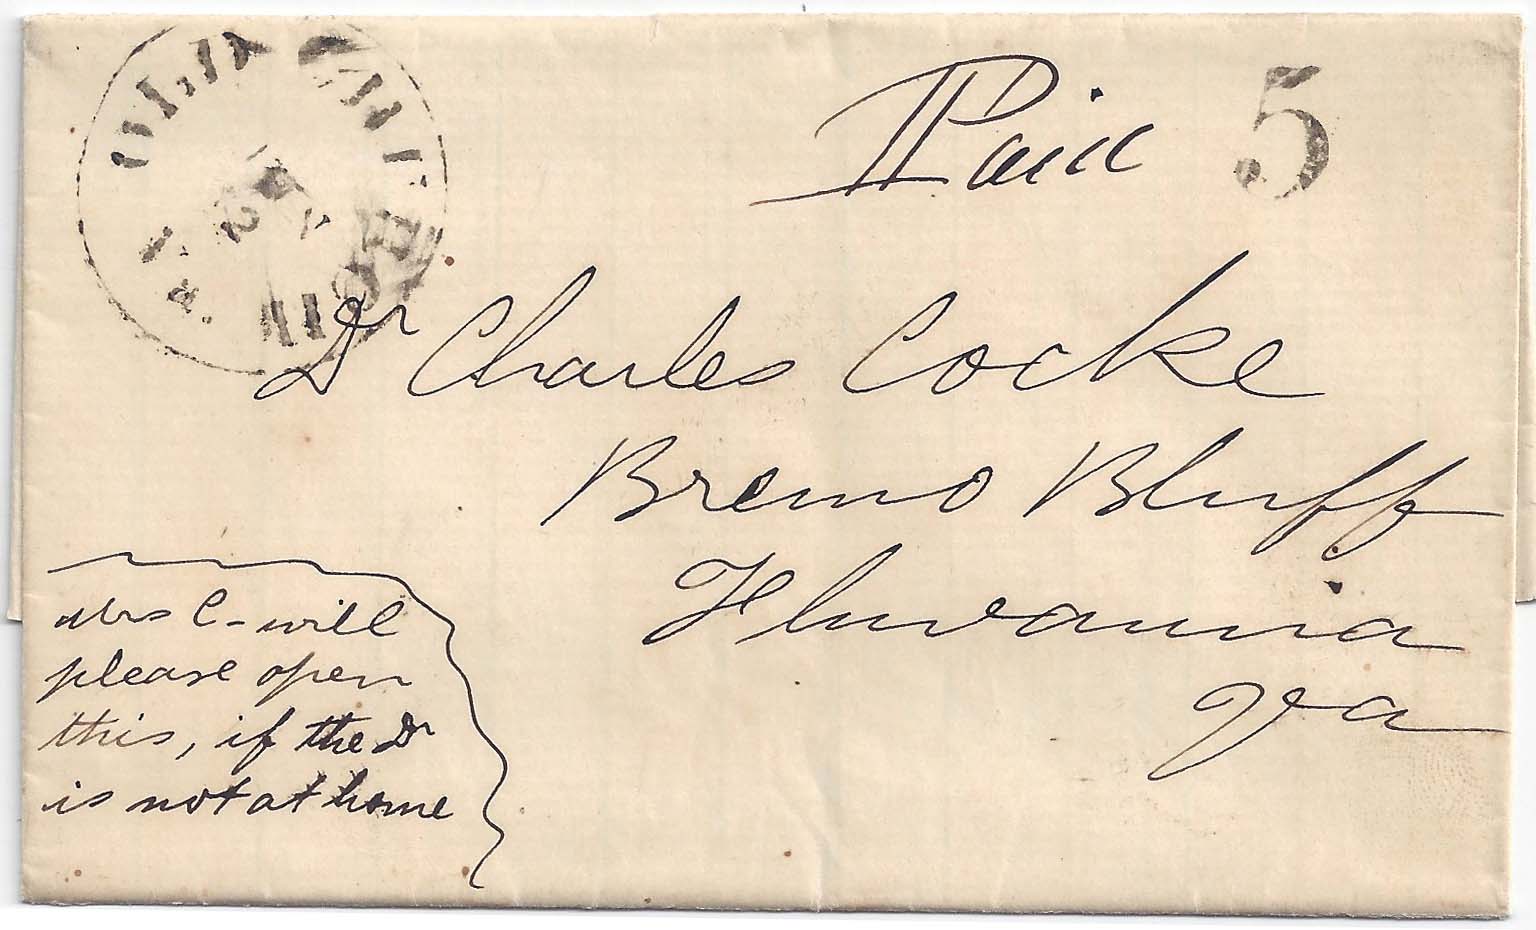 OLD POINT COMFORT
Paid 5
Dr Charles Cocke
Bremo Bluff
Fluvanna
Va
Mrs C - will
please open
this, if the Dr
is not at home